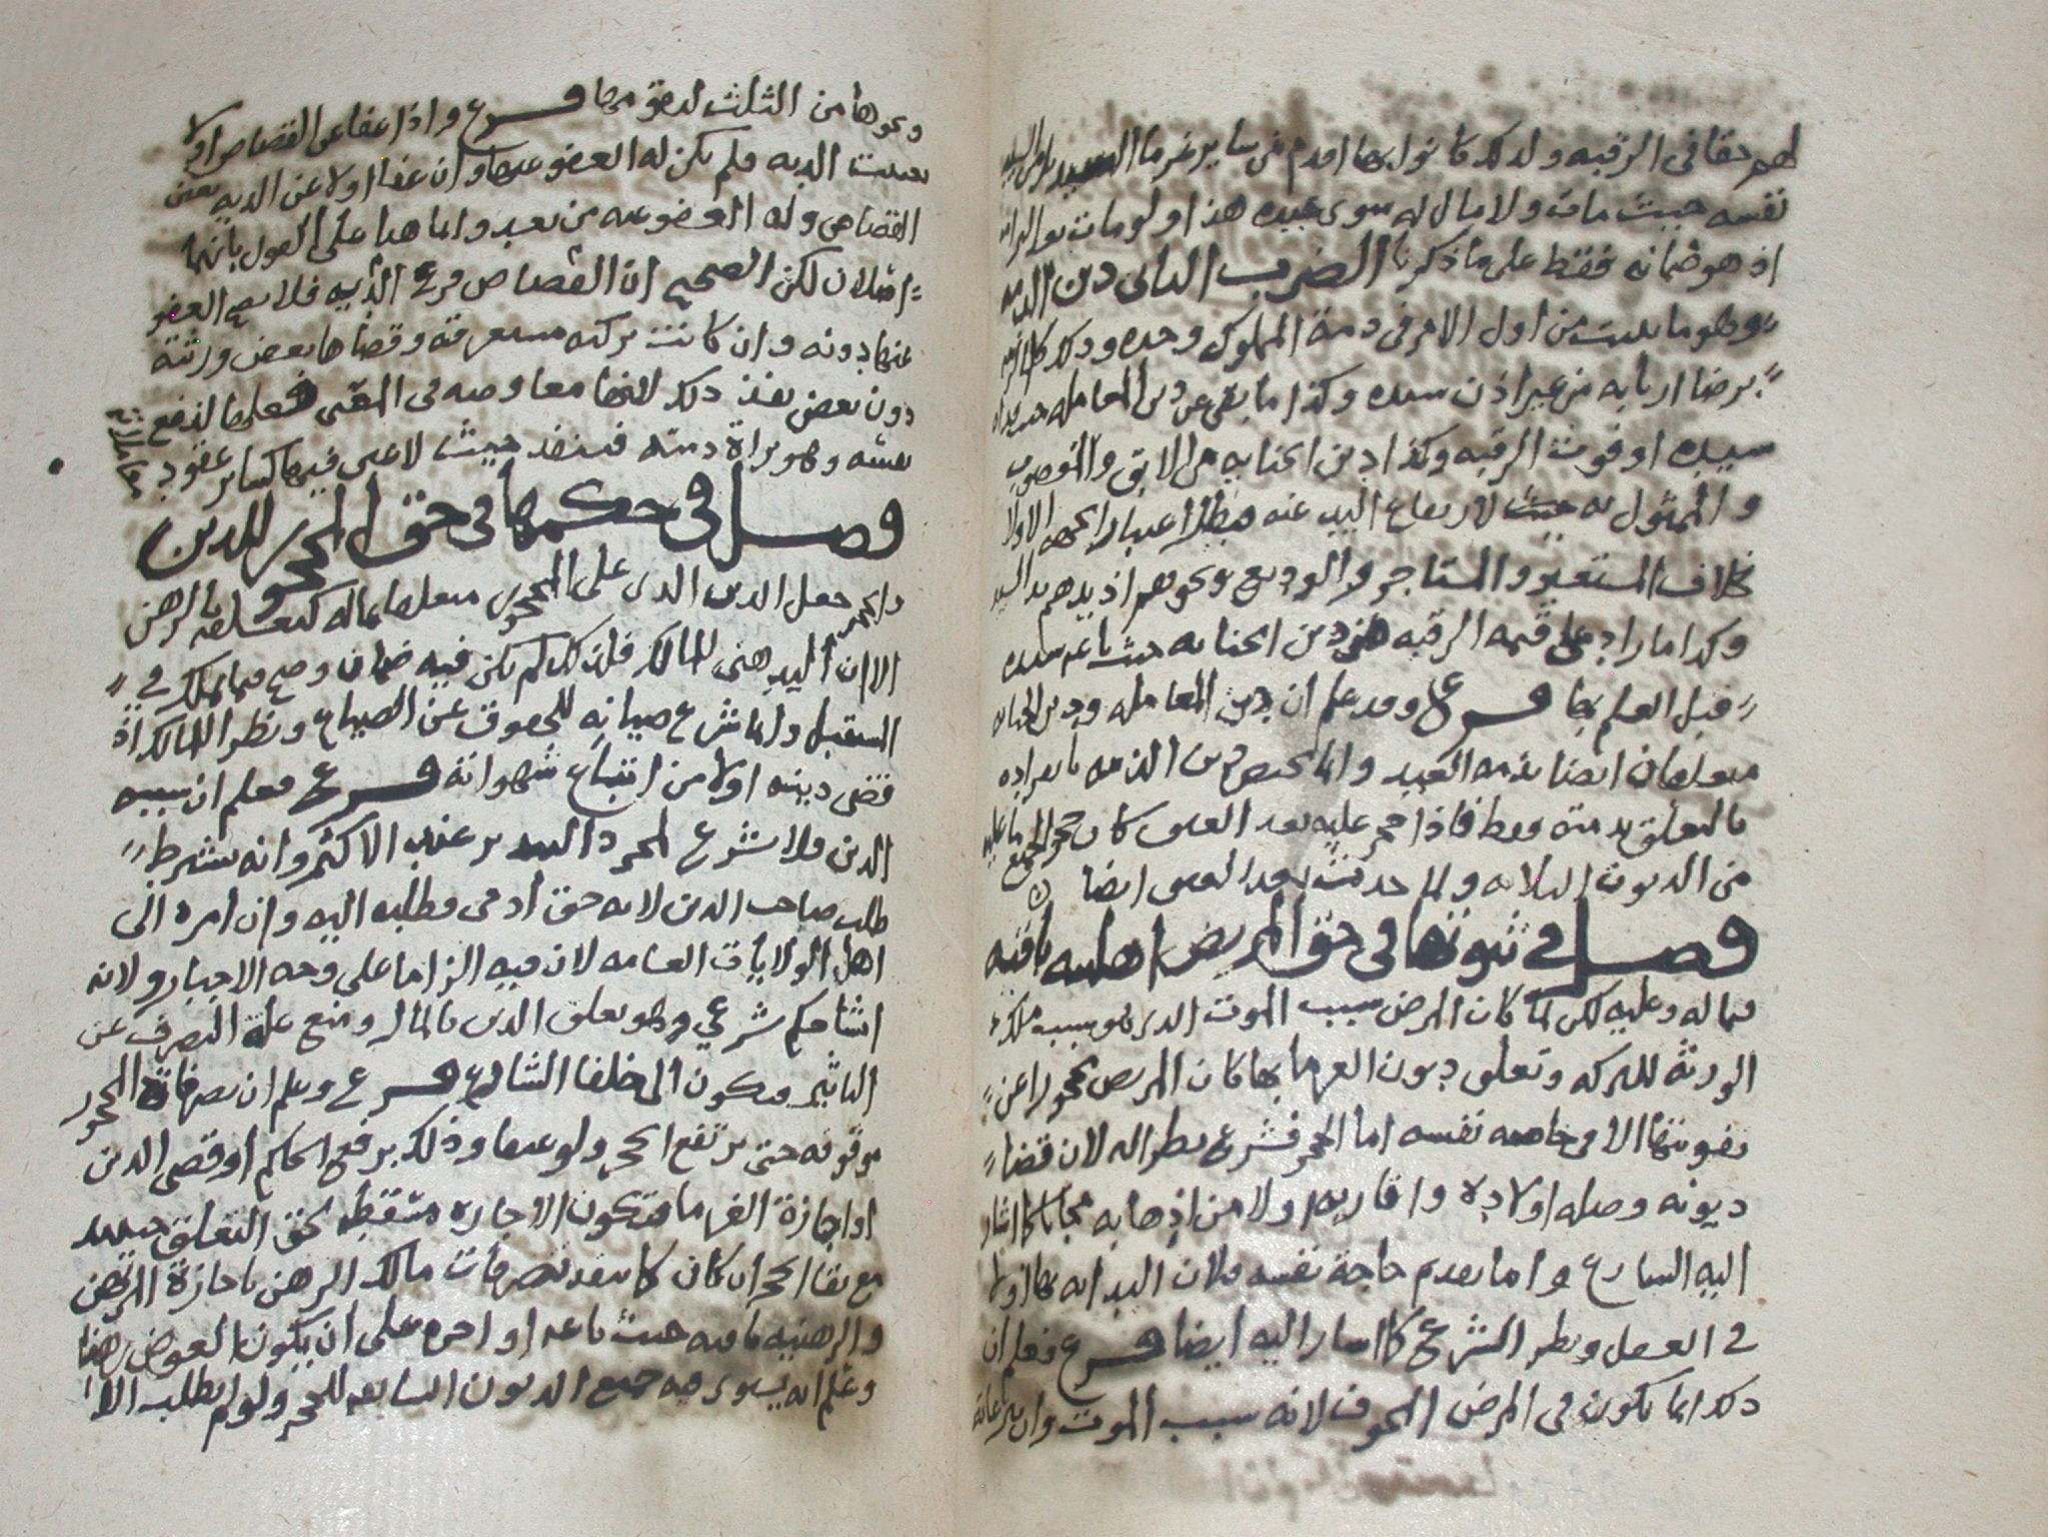 لهم حقا في الرقبه ولذلك كانوا بها اقدم من ساير غرما السيد
نفسه حيث مات ولا مال له سوى عبده هذا او لو مات
اذ هو ضمانه فقط على ما ذكرنا الضرب الثاني دين الذمه
وهو ما يثبت من اول الامر في ذمة المملوك وحده وذلك
برضا اربابه من غير اذن سيده وكذا ما بقي عن دين المعامله
سيده او فوت الرقبه وكذا دين الجنايه من الابق والمغصوب
والممثول به حيث لارتفاع اليد عنه
بخلاف المستعير والمستاجر والوديع ونحوهم اذ يدهم يد السيد
وكذا ما زاد على قيمه الرقبه من دين الجنايه حيث باعه سيده
قبل العلم بها فرع وقد علم ان دين المعامله ودين الجنايه
متعلقان ايضا بذمه العبد وانما يختص دين الذمه بانفراده
بالتعلق بذمته فقط فاذا حجر عليه بعد العتق كان حجرا لجميع ما عليه
من الديون الثلاثه ولما حدث بعد العتق ايضا
فصل في ثبوتها في حق المريض اهليته باقيه
فيما له وعليه لكن لما كان المرض سبب الموت الذي هو سبب ملك
الورثة للتركه وتعلق ديون الغرما بها كان المريض محجورا عن
تفويتها الا في حاجه نفسه اما الحجر فشرع نظرا له لان قضا
ديونه وصله اولاده واقاربه اولا من اذهابه مجانا كما اشار
اليه الشارع واما تقدم حاجة نفسه فلان البدايه بها اولا
في العقل ونظر الشرع كما اشار اليه ايضا فرع فعلم ان
ذلك انما يكون في المرض المخوف لانه سبب الموت وان
ونحوها من الثلث لحقوقها فرع واذا عفا عن القصاص اولا
تعينت الديه فلم يكن له العفو عنها وان عفا اولا عن الديه تعين
القصاص وله العفو عنه من بعد وانما هذا على القول بانهما
اصلان لكن الصحيح ان القصاص فرع الديه فلا يصح العفو
عنها دونه وان كانت تركته مستغرقه وقضاها بعض ورثته
دون بعض نفذ ذلك لانها معاوضه في المعنى فعلها لنفع
نفسه وهو براة ذمته فينفذ حيث لا غبن فيها كساير عقود
معاملاته
فصل في حكمها في حق المحجور للدين
والحجر جعل الدين الذي على المحجور متعلقا بماله كتعلقه بالرهن
الا ان اليد هنى للمالك فلذلك لم يكن فيه ضمان وصح فيما يملك في
المستقبل وانما شرع صيانه للحقوق عن الضياع ونظرا للمالك اذ
قضى دينه اولا من اتباع شهواته فرع فعلم ان سببه
الدين فلا يشرع لمجرد التبذير عند الاكثر وانه يشترط
طلب صاحب الدين لانه حق ادمي فطلبه اليه وان امره الى
اهل الولايات العامه لان فيه الزاما على وجه الاجبار ولانه
انشا حكم شرعي وهو تعلق الدين بالمال ومنع علة التصرف عن
التاثير فيكون الى خلفا الشارع فرع وعلم ان تصرفات المحجور
موقوفه حتى يرتفع الحجر ولو عنها وذلك برفع الحاكم او قضى الدين
او اجازة الغرما فتكون الاجازه مسقطه لحق التعلق حينئذ
مع بقا الحجر ان كان كما تنفذ تصرفات مالك الرهن باجازة المرتهن
والرهنيه باقيه حيث باعه او اجره على ان يكون العوض رهنا
وعلم انه يستوي فيه جميع الديون السابقه للحجر ولو لم يطلبه الا